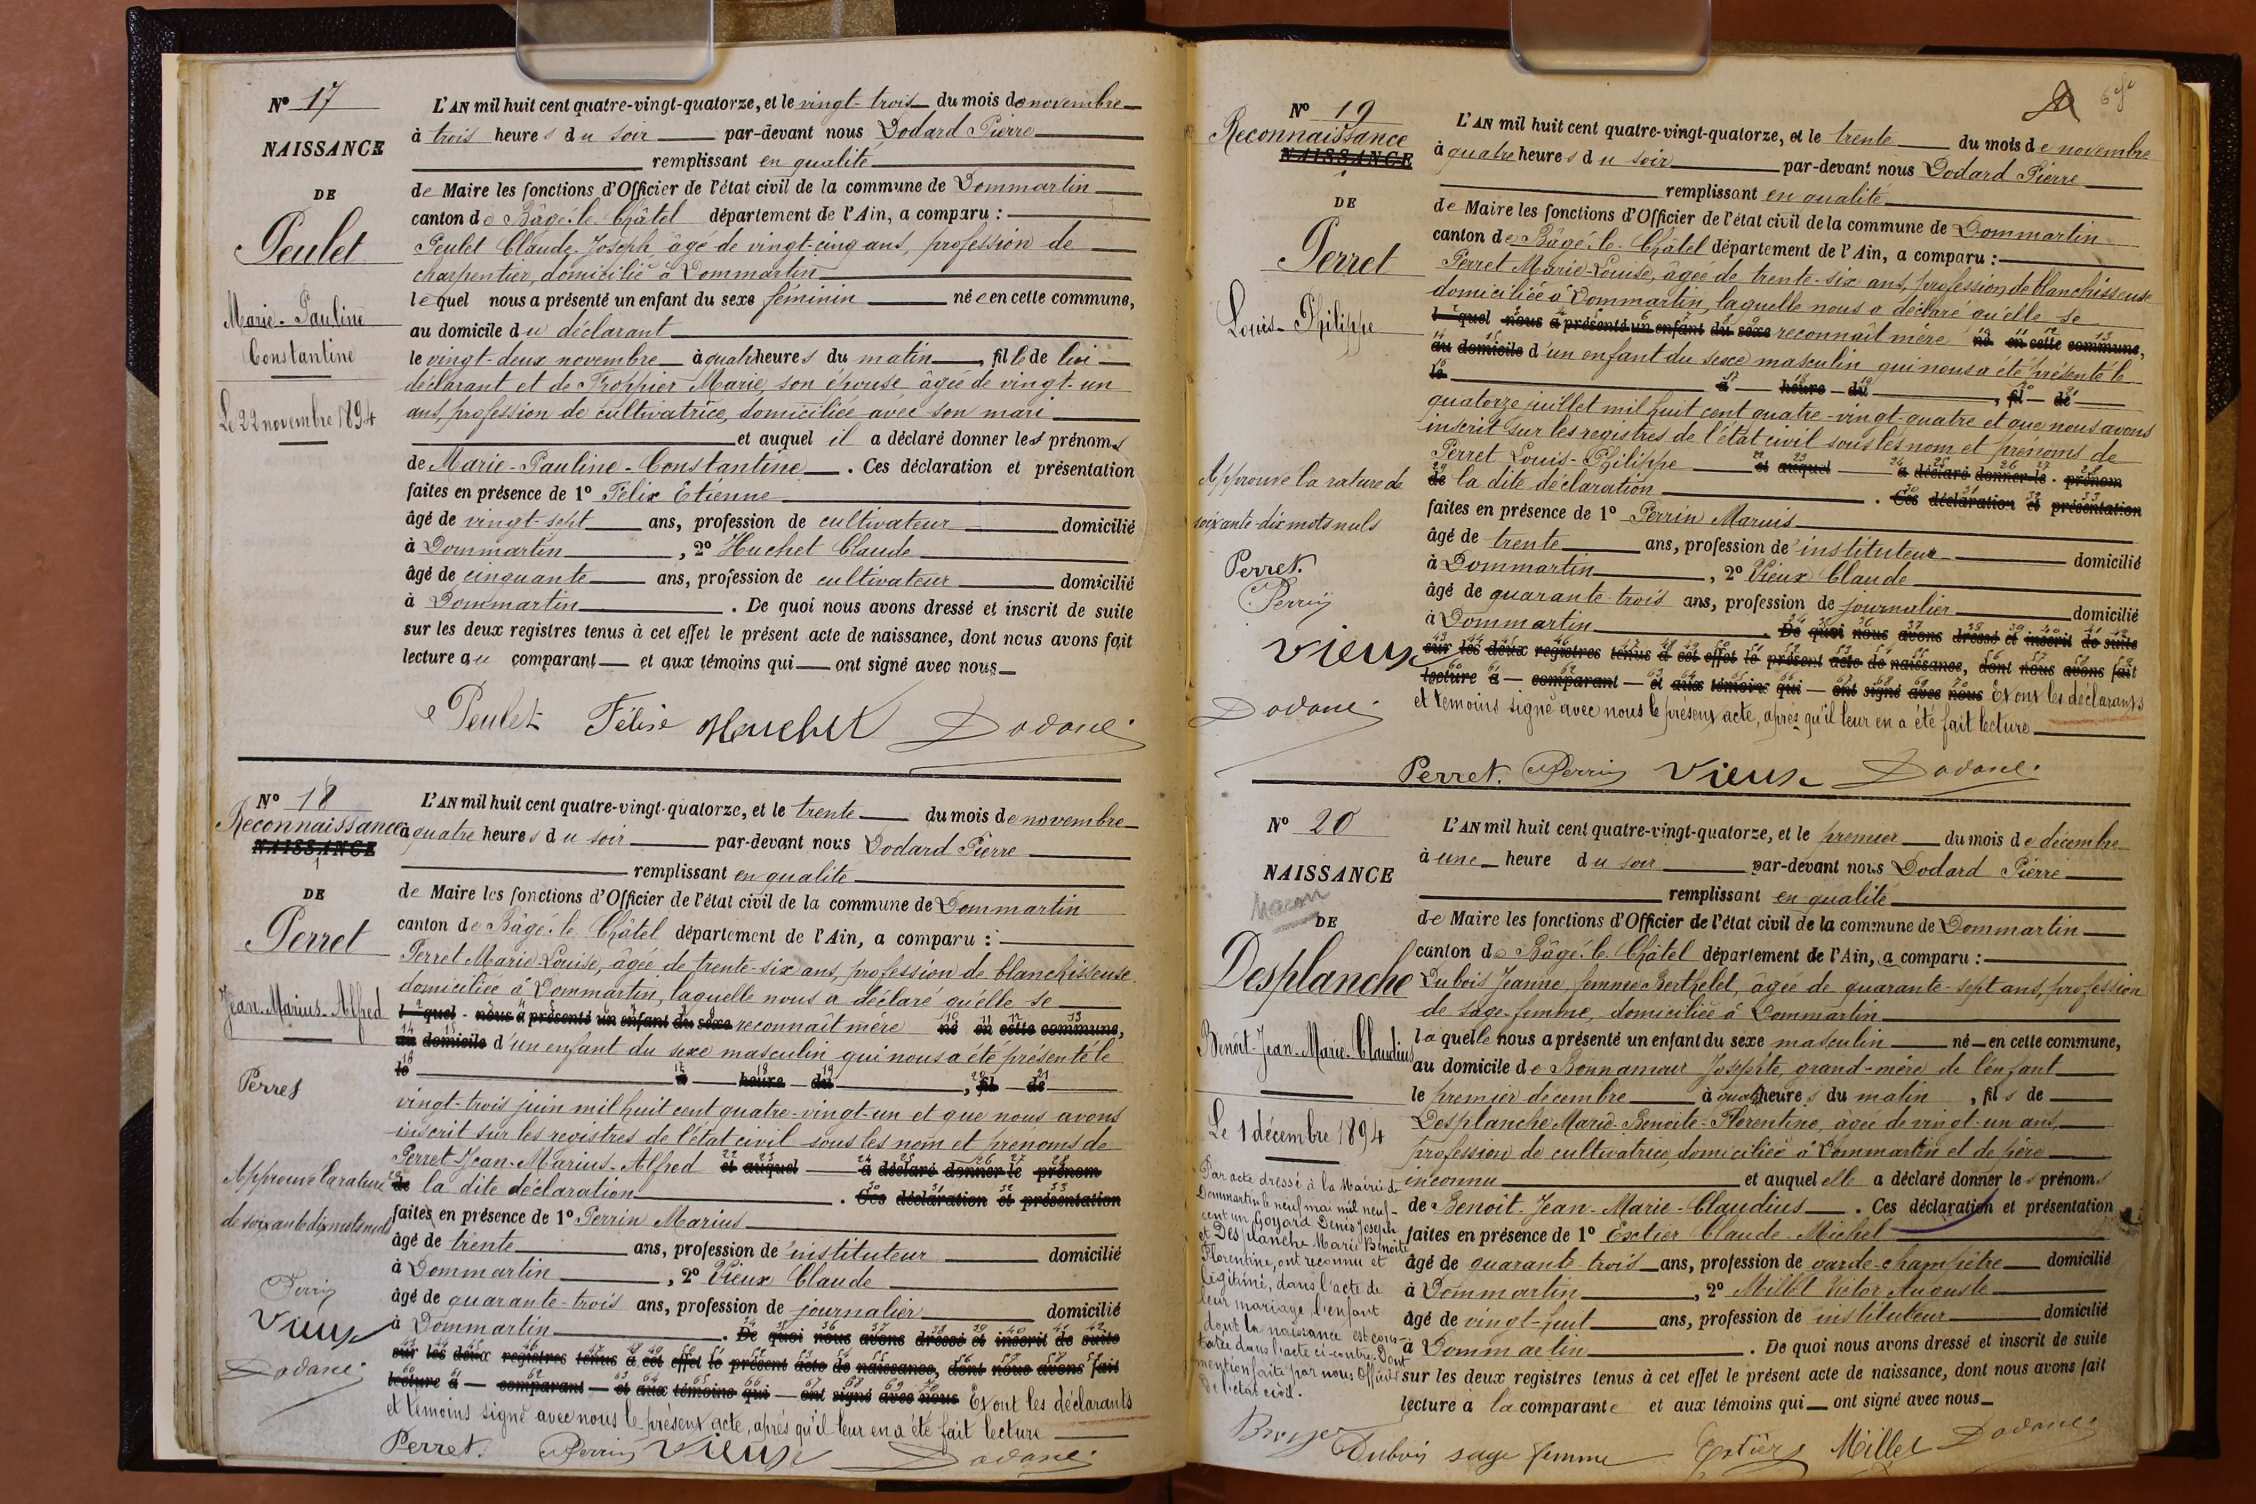 N° 17
NAISSANCE
DE
Peulet
Marie-Pauline
Constantine
Le 22 novembre 1894
L'AN mil huit cent quatre-vingt-quatorze, et le vingt-trois du mois de novembre
à trois heures du soir par-devant nous Dodard Pierre
remplissant en qualité
de Maire les fonctions d'Officier de l'état civil de la commune de Dommartin
canton de Bâgé-le-Châtel département de l'Ain, a comparu :
Peulet Claude-Joseph âgé de vingt-cinq ans, profession de
charpentier, domicilié à Dommartin
lequel nous a présenté un enfant du sexe féminin née en cette commune,
au domicile du déclarant
le vingt-deux novembre à quatre heures du matin, fille de lui
déclarant et de Froppier Marie, son épouse âgée de vingt-un
ans, profession de cultivatrice, domiciliée avec son mari
et auquel il a déclaré donner les prénoms
de Marie-Pauline-Constantine. Ces déclaration et présentation
faites en présence de 1° Félix Etienne
âgé de vingt-sept ans, profession de cultivateur domicilié
à Dommartin, 2° Huchet Claude
âgé de cinquante ans, profession de cultivateur domicilié
à Dommartin. De quoi nous avons dressé et inscrit de suite
sur les deux registres tenus à cet effet le présent acte de naissance, dont nous avons fait
lecture au comparant et aux témoins qui ont signé avec nous
Peulet Félix Huchet Dodard
N° 18
Reconnaissance
NAISSANCE
DE
Perret
Jean-Marius-Alfred
Perret
Approuvé la rature
de soixante dix mots nuls
Perrin
Vieux
Dodard
L'AN mil huit cent quatre-vingt-quatorze, et le trente du mois de novembre
à quatre heures du soir par-devant nous Dodard Pierre
remplissant en qualité
de Maire les fonctions d'Officier de l'état civil de la commune de Dommartin
canton de Bâgé-le-Châtel département de l'Ain, a comparu :
Perret Marie Louise, âgée de trente-six ans, profession de blanchisseuse
domiciliée à Dommartin, laquelle nous a déclaré qu'elle se
l quel nous a présenté un enfant du sexe reconnaît mère né en cette commune,
au domicile d'un enfant du sexe masculin qui nous a été présenté le
le à heure du , fil de
vingt-trois juin mil huit cent quatre-vingt-un et que nous avons
inscrit sur les registres de l'état civil sous les nom et prénoms de
Perret Jean-Marius-Alfred et auquel a déclaré donner le prénom
de la dite déclaration. Ces déclaration et présentation
faites en présence de 1° Perrin Marius
âgé de trente ans, profession de instituteur domicilié
à Dommartin, 2° Vieux Claude
âgé de quarante-trois ans, profession de journalier domicilié
à Dommartin. De quoi nous avons dressé et inscrit de suite
sur les deux registres tenus à cet effet le présent acte de naissance, dont nous avons fait
lecture à comparant et aux témoins qui ont signé avec nous Et ont les déclarants
et témoins signé avec nous le présent acte, après qu'il leur en a été fait lecture
Perret. Perrin Vieux Dodard
N° 19
Reconnaissance
NAISSANCE
DE
Perret
Louis-Philippe
Approuvé la rature de
soixante-dix mots nuls
Perret.
Perrin
Vieux
Dodard
L'AN mil huit cent quatre-vingt-quatorze, et le trente du mois de novembre
à quatre heures du soir par-devant nous Dodard Pierre
remplissant en qualité
de Maire les fonctions d'Officier de l'état civil de la commune de Dommartin
canton de Bâgé-le-Châtel département de l'Ain, a comparu :
Perret Marie-Louise, âgée de trente-six ans, profession de blanchisseuse
domiciliée à Dommartin, laquelle nous a déclaré qu'elle se
l quel nous a présenté un enfant du sexe reconnaît mère né en cette commune,
au domicile d'un enfant du sexe masculin qui nous a été présenté le
le à heure du , fil de
quatorze juillet mil huit cent quatre-vingt-quatre et que nous avons
inscrit sur les registres de l'état civil sous les nom et prénoms de
Perret Louis-Philippe et auquel a déclaré donner le prénom
de la dite déclaration. Ces déclaration et présentation
faites en présence de 1° Perrin Marius
âgé de trente ans, profession de instituteur domicilié
à Dommartin, 2° Vieux Claude
âgé de quarante-trois ans, profession de journalier domicilié
à Dommartin. De quoi nous avons dressé et inscrit de suite
sur les deux registres tenus à cet effet le présent acte de naissance, dont nous avons fait
lecture à comparant et aux témoins qui ont signé avec nous Et ont les déclarants
et témoins signé avec nous le présent acte, après qu'il leur en a été fait lecture
Perret. Perrin Vieux Dodard
N° 20
NAISSANCE
Macon
DE
Desplanche
Benoît-Jean-Marie-Claudius
Le 1 décembre 1894
Par acte dressé à la Mairie de
Dommartin le neuf mai mil neuf-
cent un Goyard Denis Joseph
et Desplanche Marie Benoite
Florentine, ont reconnu et
légitimé, dans l'acte de
leur mariage, l'enfant
dont la naissance est cons-
tatée dans l'acte ci-contre. Dont
mention faite par nous Officier
de l'état civil.
L'AN mil huit cent quatre-vingt-quatorze, et le premier du mois de décembre
à une heure du soir par-devant nous Dodard Pierre
remplissant en qualité
de Maire les fonctions d'Officier de l'état civil de la commune de Dommartin
canton de Bâgé-le-Châtel département de l'Ain, a comparu :
Dubois Jeanne, femme Berthelet, âgée de quarante-sept ans, profession
de sage-femme, domiciliée à Dommartin
laquelle nous a présenté un enfant du sexe masculin né en cette commune,
au domicile de Bonnamour Josephte, grand-mère de l'enfant
le premier décembre à quatre heures du matin, fils de
Desplanche Marie-Benoite-Florentine, âgée de vingt-un ans,
profession de cultivatrice, domiciliée à Dommartin et de père
inconnu et auquel elle a déclaré donner les prénoms
de Benoît-Jean-Marie-Claudius. Ces déclaration et présentation
faites en présence de 1° Extier Claude-Michel
âgé de quarante-trois ans, profession de garde-champêtre domicilié
à Dommartin, 2° Millet Victor Auguste
âgé de vingt-huit ans, profession de instituteur domicilié
à Dommartin. De quoi nous avons dressé et inscrit de suite
sur les deux registres tenus à cet effet le présent acte de naissance, dont nous avons fait
lecture à la comparante et aux témoins qui ont signé avec nous
Dubois sage femme Extier Millet Dodard